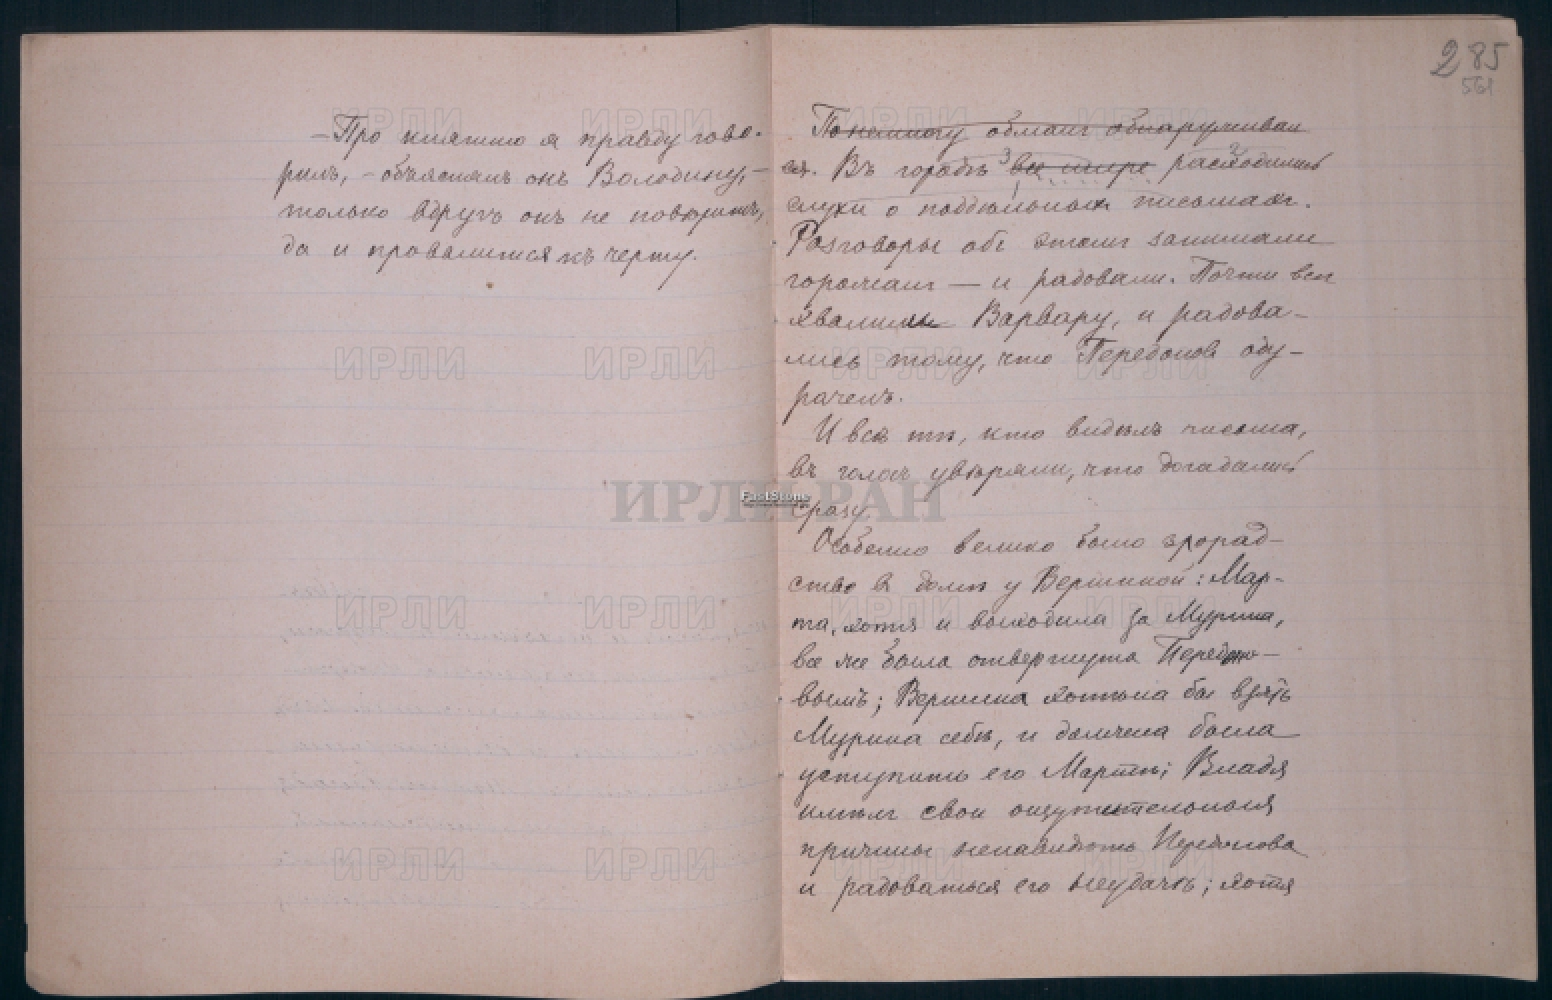 — Про княгиню я правду гово-
рилъ, — объяснялъ онъ Володину, —
только вдругъ онъ не повѣритъ,
да и провалится къ черту.
285
561
Понемногу обманъ обнаруживал
ся. Въ городѣ 3 все шире расходились
слухи о поддѣльных письмахъ.
Разговоры объ этомъ занимали
горожанъ — и радовали. Почти всѣ
хвалили Варвару, и радова-
лись тому, что Передоновъ оду-
раченъ.
И всѣ тѣ, кто видѣлъ письма,
въ голосъ увѣряли, что догадались
сразу.
Особенно велико было злорад-
ство въ домѣ у Вершиной: Мар-
та, хотя и выходила за Мурина,
все же была отвергнута Передоно-
вымъ; Вершина хотѣла бы взять
Мурина себѣ, и должна была
уступить его Мартѣ; Владя
имѣлъ свои ощутительныя
причины ненавидѣть Передонова
и радоваться его неудачѣ; хотя
ИРЛИ ИРЛИ ИРЛИ ИРЛИ
ИРЛИ ИРЛИ ИРЛИ ИРЛИ
ИРЛИ РАН
FastStone
ИРЛИ ИРЛИ ИРЛИ ИРЛИ
ИРЛИ ИРЛИ ИРЛИ ИРЛИ